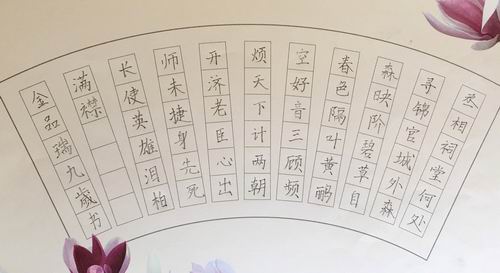 丞相祠堂何处
寻锦官城外森
森映阶碧草自
春色隔叶黄鹂
空好音三顾频
烦天下计两朝
开济老臣心出
师未捷身先死
长使英雄泪柏
满襟
金品瑞九歲书